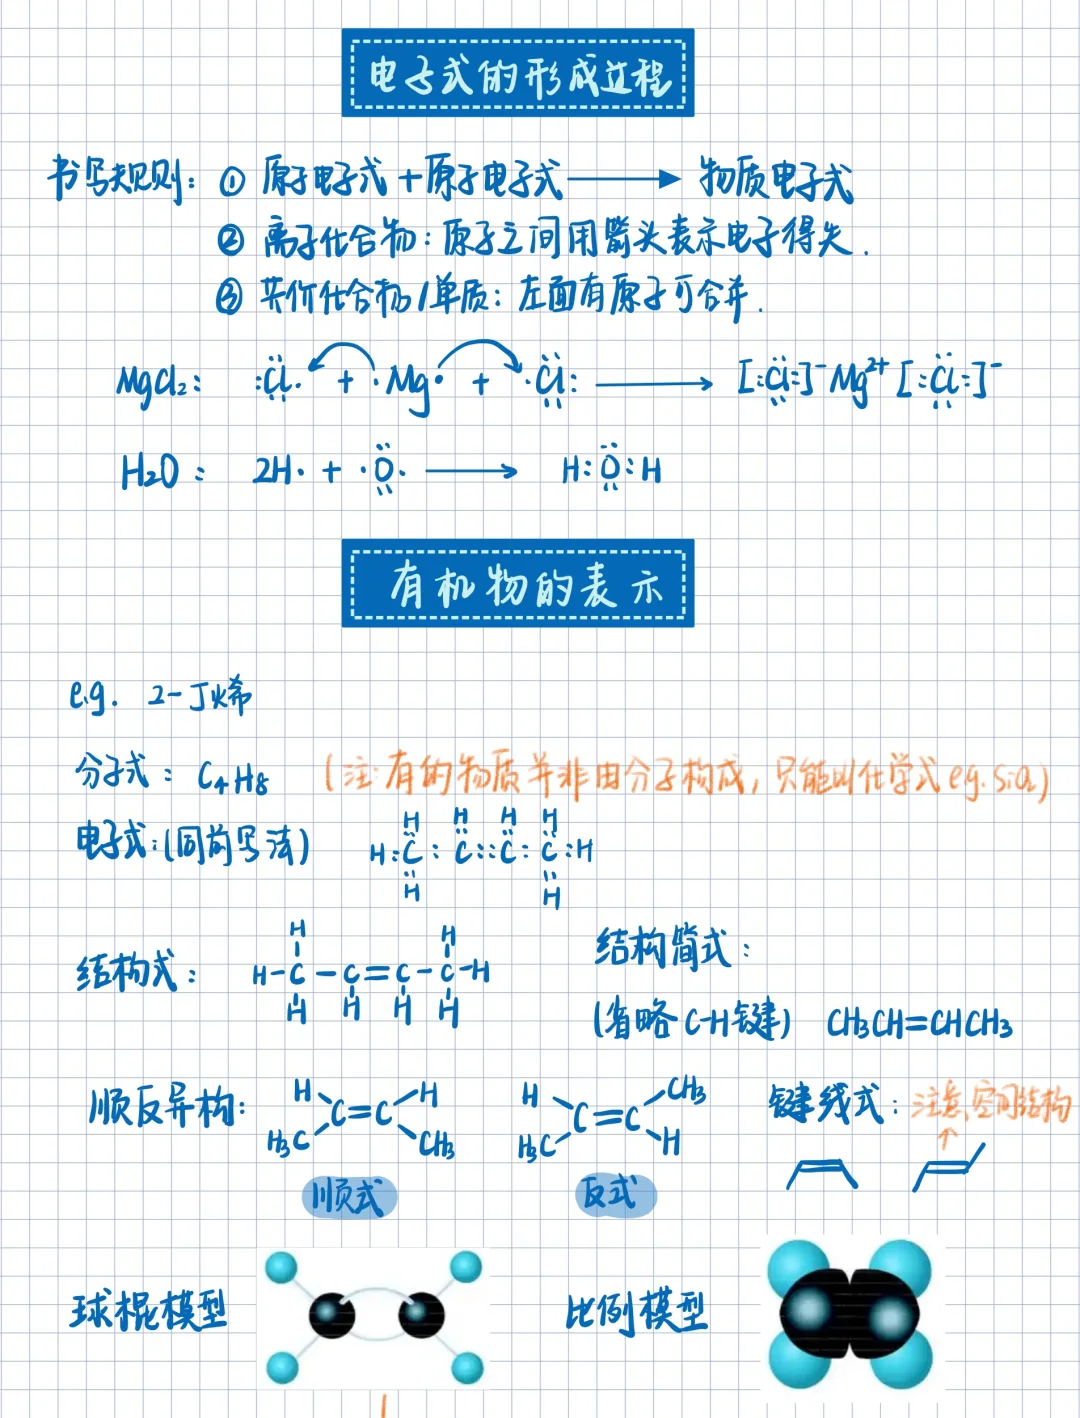 电子式的形成过程
书写规则: ① 原子电子式 + 原子电子式 ⟶ 物质电子式
② 离子化合物: 原子之间用箭头表示电子得失.
③ 共价化合物/单质: 左面有原子可合并.
MgCl₂: :Cl· + ·Mg· + ·Cl: ⟶ [:Cl:]⁻Mg²⁺[:Cl:]⁻
H₂O: 2H· + ·O· ⟶ H:O:H
有机物的表示
e.g. 2-丁烯
分子式: C₄H₈ (注:有的物质并非由分子构成, 只能叫化学式 eg.
电子式:(同前写法)
H H H H
H:C:C::C:C:H
H H
结构式:
H H
H-C-C=C-C-H
H H H H
结构简式:
(省略C-H键) CH₃CH=CHCH₃
顺反异构:
H H
C=C
H₃C CH₃
顺式
H CH₃
C=C
H₃C H
反式
键线式: 注意空间结构
球棍模型
比例模型